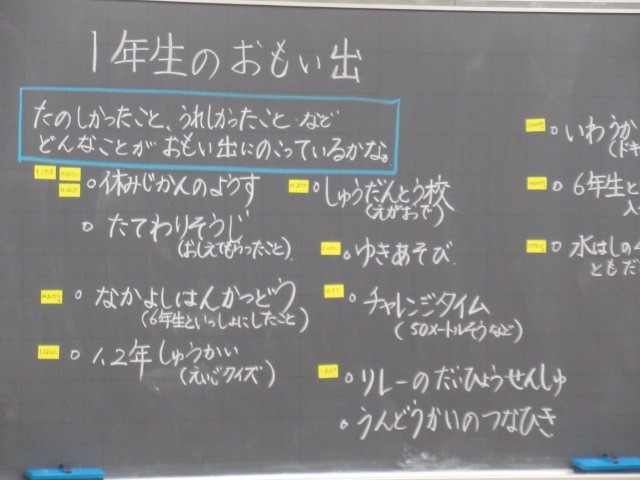 1年生のおもい出
たのしかったこと、うれしかったこと など
どんなことが おもい出にのこっているかな。
○休みじかんのようす
○たてわりそうじ
(おしえてもらったこと)
○なかよしはんかつどう
(6年生といっしょにしたこと)
○1、2年しゅうかい
(えいごクイズ)
○しゅうだんとう校
(えがおで)
○ゆきあそび
○チャレンジタイム
(50メートルそうなど)
○リレーのだいひょうせんしゅ
○うんどうかいのつなひき
○いわうか
(ドキ
○6年生と
○水はしの
ともだ